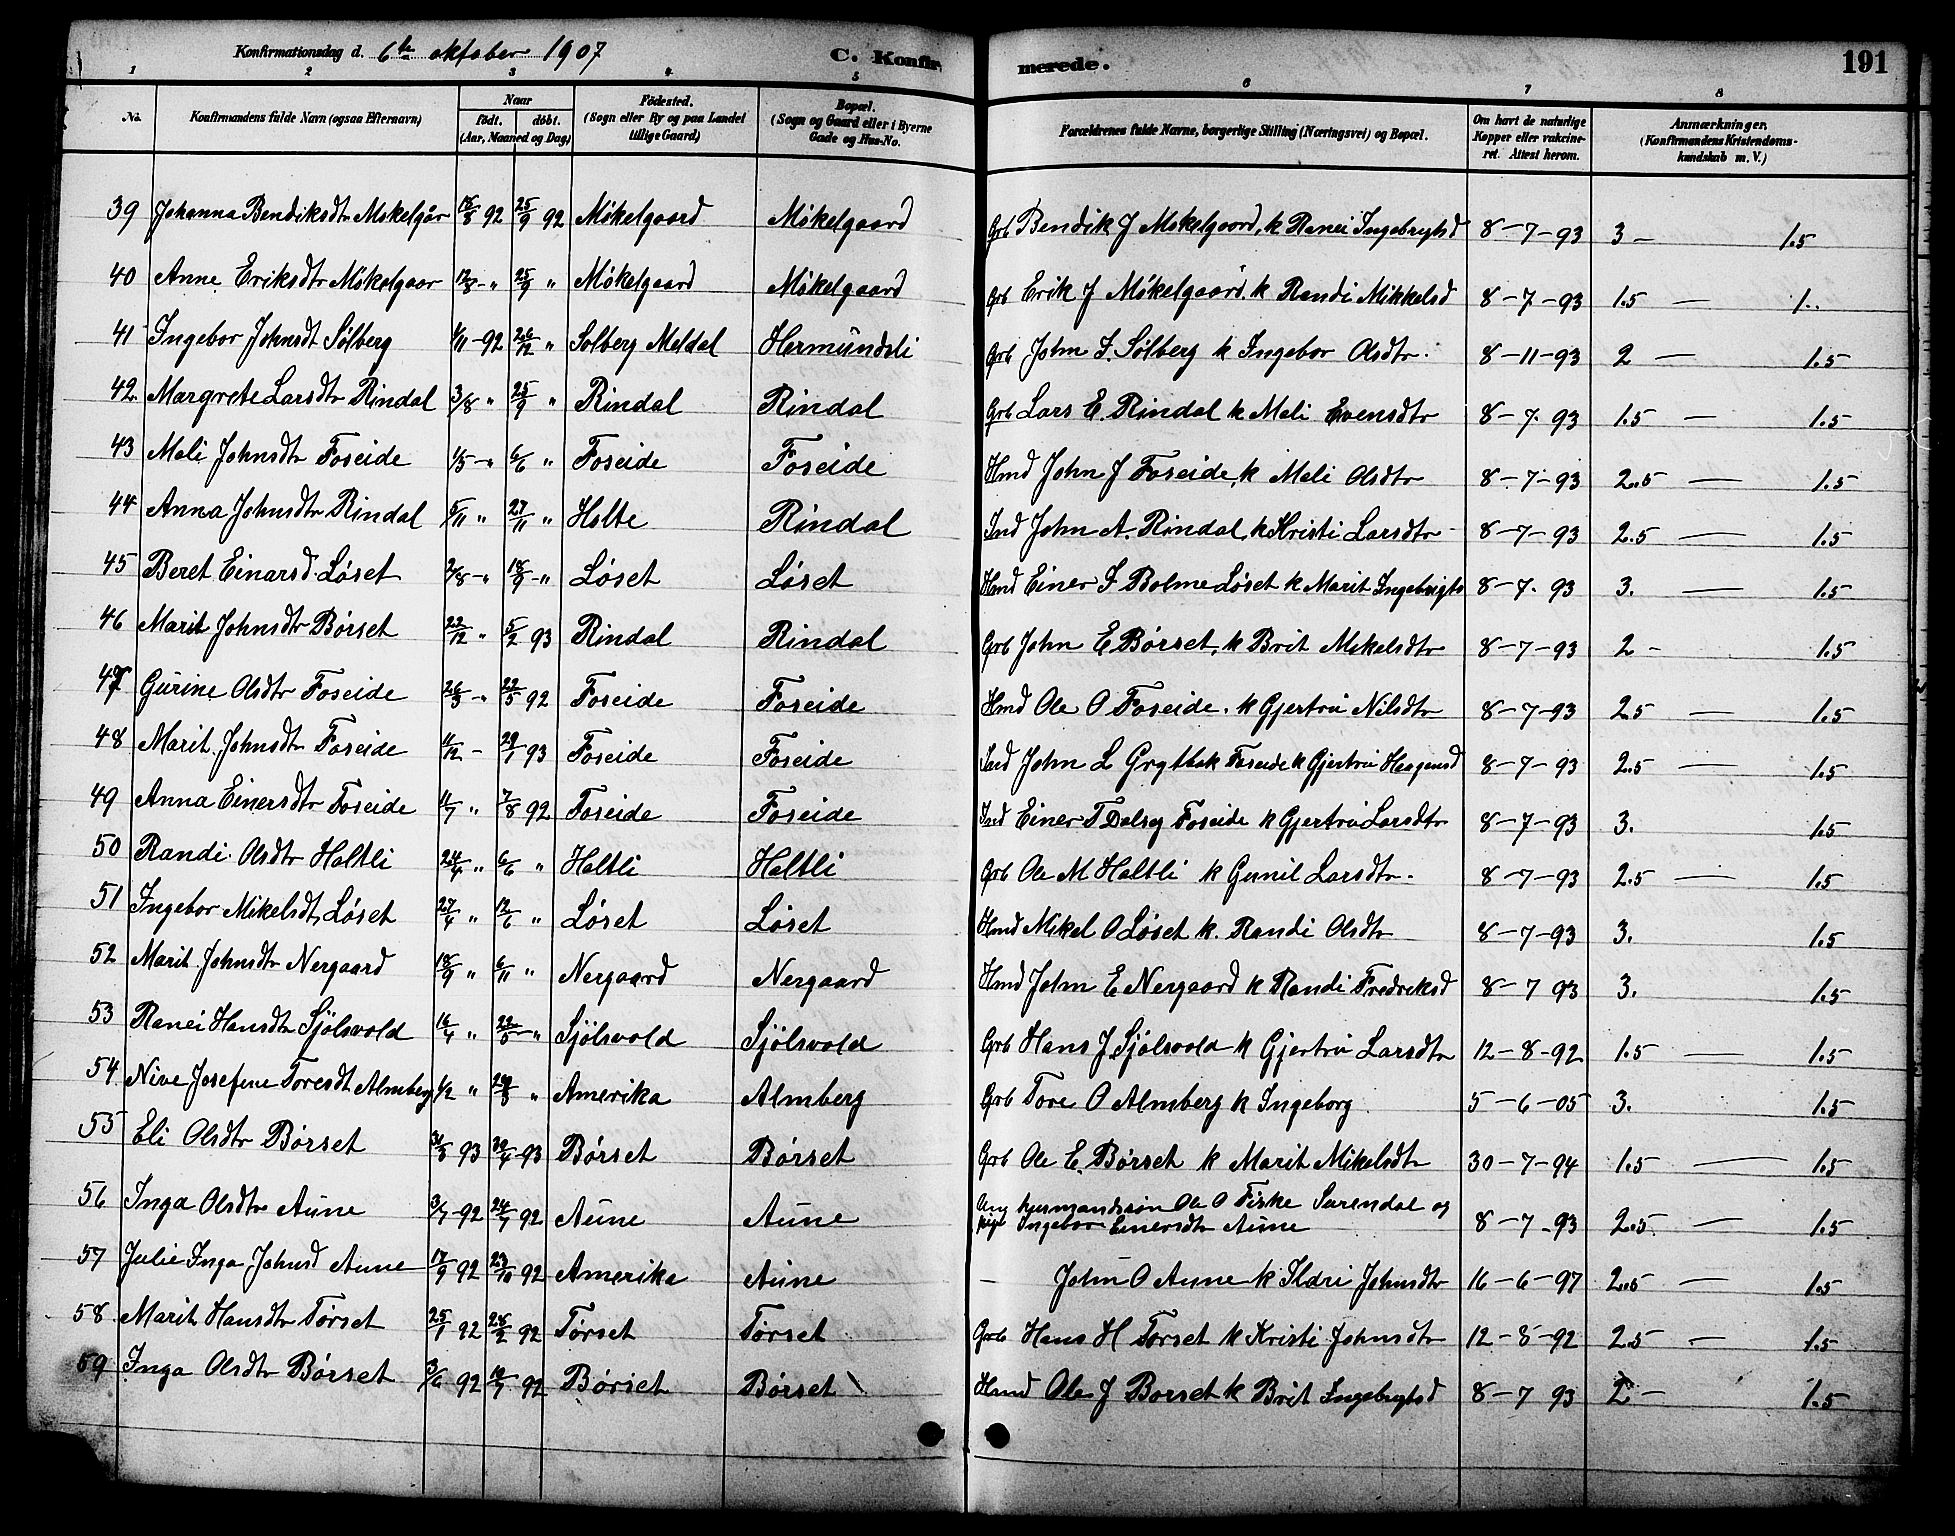 Konfirmationsdag d. 6te oktober 1907 C. Konfir- merede. 191
1 2 3 4 5 6 7 8
No. Konfirmandens fulde Navn (ogsaa Efternavn) Naar født. døbt. (Aar, Maaned og Dag) Fødested. (Sogn eller By og paa Landet tillige Gaard) Bopæl. (Sogn og Gaard eller i Byerne Gade og Hus-No. Forældrenes fulde Navne, borgerlige Stilling (Næringsvei) og Bopæl. Om havt de naturlige Kopper eller vakcineret. Attest herom. Anmærkninger. (Konfirmandens Kristendomskundskab m. V.)
39 Johanna Bendiksdtr Mokelgår 18/8 92 25/9 92 Møkelgaard Møkelgaard Grb Bendik J Mokelgaard, k Ranei Ingebrigtsd 8-7-93 3 - 1.5
40 Anne Eriksdtr Møkelgaar 12/8 - " 25/9 " Møkelgaard Møkelgaard Grb Erik J Møkelgaard. k Randi Mikkelsd 8-7-93 1.5 — 1.
41 Ingebor Johnsdt Sølberg 1/11 - 92 26/12 " Solberg Meldal Hermundsli Grb John I. Sølberg k Ingebor Olsdtr. 8-11-93 2 — 1.5
42. Margrete Larsdtr Rindal 3/8 " 25/9 " Rindal Rindal Grb Lars E. Rindal k Meli Evensdtr 8-7. 93 1.5 — 1.5
43 Meli Johnsdtr Foseide 1/5 - " 6/6 " Foseide Foseide Hmd John J Foseide, k Meli Olsdtr 8-7-93 2.5 — 1.5
44 Anna Johnsdtr Rindal 5/11 " 27/11 " Holte Rindal Ind John A. Rindal, k Kristi Larsdtr 8-7-93 2.5 — 1.5
45 Beret Einarsd Løset 2/8 - " 18/9 - " Løset Løset Hmd Einer I. Bolme Løset k Marit Ingebrigts 8-7. 93 3. — 1.5
46 Marit Johnsdtr Børset 22/12 " 5/2 93 Rindal Rindal Grb John E Børset, k Brit Mikelsdtr 8-7-93 2 - 1.5
47 Gurine Olsdtr Foseide 26/3 - " 22/5 92 Foseide Foseide Hmd Ole O Foseide. k Gjertru Nilsdtr 8-7-93 25 — 1.5
48 Marit. Johnsdtr Foseide 11/12 - 29/1 93 Foseide Foseide Ind John L Grytbak Foseide k Gjertru Haagensd 8-7-93 2.5 — 1.5
49 Anna Einersdtr Foseide 11/7 " 7/8 92 Foseide Foseide Ind Einer T Dalseg Foseide k Gjertru Larsdtr 8-7-93 3. 1.5
50 Randi. Olsdtr Haltli 24/4 " 6/6 " Haltli Haltli Grb Ole M Haltli k Gunil Larsdtr. 8-7-93 2.5 — 1.5
51 Ingebor Mikelsdt, Løset 27/4 " 12/6 " Løset Løset Hmd Mikel O Løset k. Randi Olsdtr 8-7-93 3. 1.5
52 Marit Johnsdtr Nergaard 18/9 " 6/11 " Nergaard Nergaard Hmd John E Nergaard k Randi Fredriksd 8-7 93 3. 1.5
53 Ranei Hansdtr Sjølsvold 16/4 " 22/5 - " Sjølsvold Sjølsvold Grb Hans J Sjølsvold k Gjertru Larsdtr 12-8-92 1.5 — 1.5
54 Nive Josefine Toresdt Almberg 1/2 " " Amerika Almberg Grb Tore O Almberg k Ingeborg 5-6-05 3. 1.5
55 Eli Olsdtr Børset 31/3 93 93 Børset Børset Grb Ole E. Børset k Marit Mikelsdtr 30-7-94 1.5 — 1.5
56 Inga Olsdtr Aune 3/7 - 92 24/7 92 Aune Aune Ung kjørmandssøn Ole O Fiske Surendal og pige Ingebor Einersdtr Aune 8-7-93 2.5 — 1.5
57 Julie Inga Johnsd Aune 17/9 92 23/10 92 Amerika Aune - John O Aune k Ildri Johnsdtr 16-6-97 2.5 — 1.5
58. Marit Hansdtr Tørset 25/1 92 28/2 92 Tørset Tørset Grb Hans H Tørset k Kristi Johnsdtr 12-8-92 2.5 — 1.5
59 Inga Olsdtr Børset 3/6 92 10/7 92 Børset Børset Hmd Ole J Borset k Brit Ingebrigtsd 8-7 93 2 — 1.5